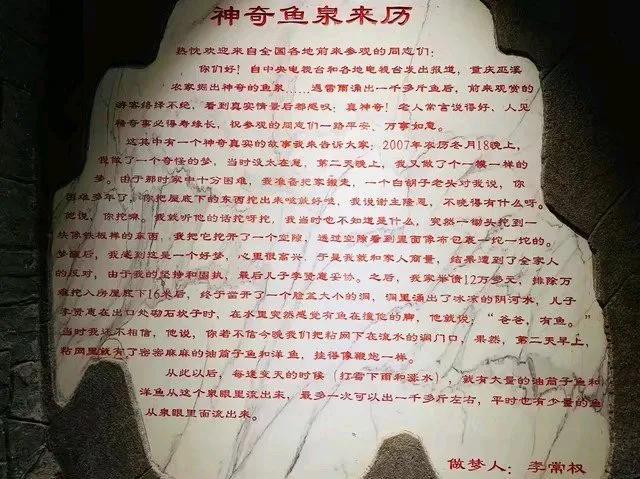 神奇鱼泉来历
热忱欢迎来自全国各地前来参观的同志们：
你们好！自中央电视台和各地电视台发出报道，重庆巫溪
农家掘出神奇的鱼泉……遇雷雨涌出一千多斤鱼后，前来观赏的
游客络绎不绝，看到真实情景后都感叹，真神奇！老人常言说得好，人见
稀奇事必得寿缘长，祝参观的同志们一路平安、万事如意。
这其中有一个神奇真实的故事我来告诉大家：2007年农历冬月18晚上，
我做了一个奇怪的梦，当时没太在意，第二天晚上，我又做了一个一模一样的
梦。由于那时家中十分困难，我准备把家搬走，一个白胡子老头对我说，你
困难多年了，你把屋底下的东西挖出来哒就好哒，我说谢主隆恩，不晓得有什么呀。
他说，你挖嘛。我就听他的话挖呀挖，我当时也不知道是什么，突然一锄头挖到一
块像铁板样的东西，我把它挖开了一个空隙，透过空隙看到里面像布包裹一坨一坨的。
梦醒后，我感到这是一个好梦，心里很高兴，于是我就和家人商量，结果遭到了全家人
的反对，由于我的坚持和固执，最后儿子李贤惠妥协。之后，我家举债12万多元，排除万
难挖入房屋底下16米后，终于凿开了一个脸盆大小的洞，洞里涌出了冰凉的阴河水，儿子
李贤惠在出口处砌石坎子时，在水里突然感觉有鱼在撞他的脚，他就说，“爸爸，有鱼。”
当时我还不相信，他说，你若不信今晚我们把粘网下在流水的洞门口，果然，第二天早上，
粘网里就有了密密麻麻的油筒子鱼和洋鱼，挂得像鞭炮一样。
从此以后，每逢变天的时候（打雷下雨和涨水），就有大量的油筒子鱼和
洋鱼从这个泉眼里流出来，最多一次可以出一千多斤左右，平时也有少量的鱼
从泉眼里面流出来。
做梦人：李常权